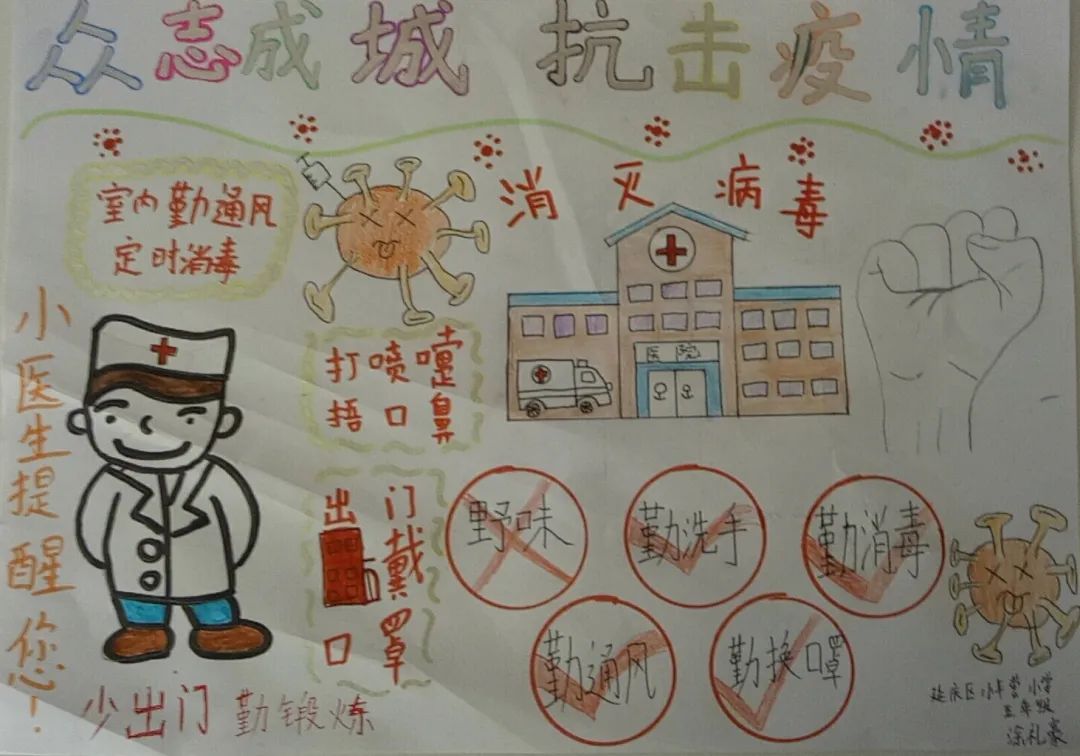 众志成城 抗击疫情
室内勤通风
定时消毒
消灭病毒
医院
打喷嚏
捂口鼻
小医生提醒您！
出门戴
口罩
野味
勤洗手
勤消毒
勤通风
勤换口罩
少出门 勤锻炼
延庆区小丰营小学
五年级
涂礼豪